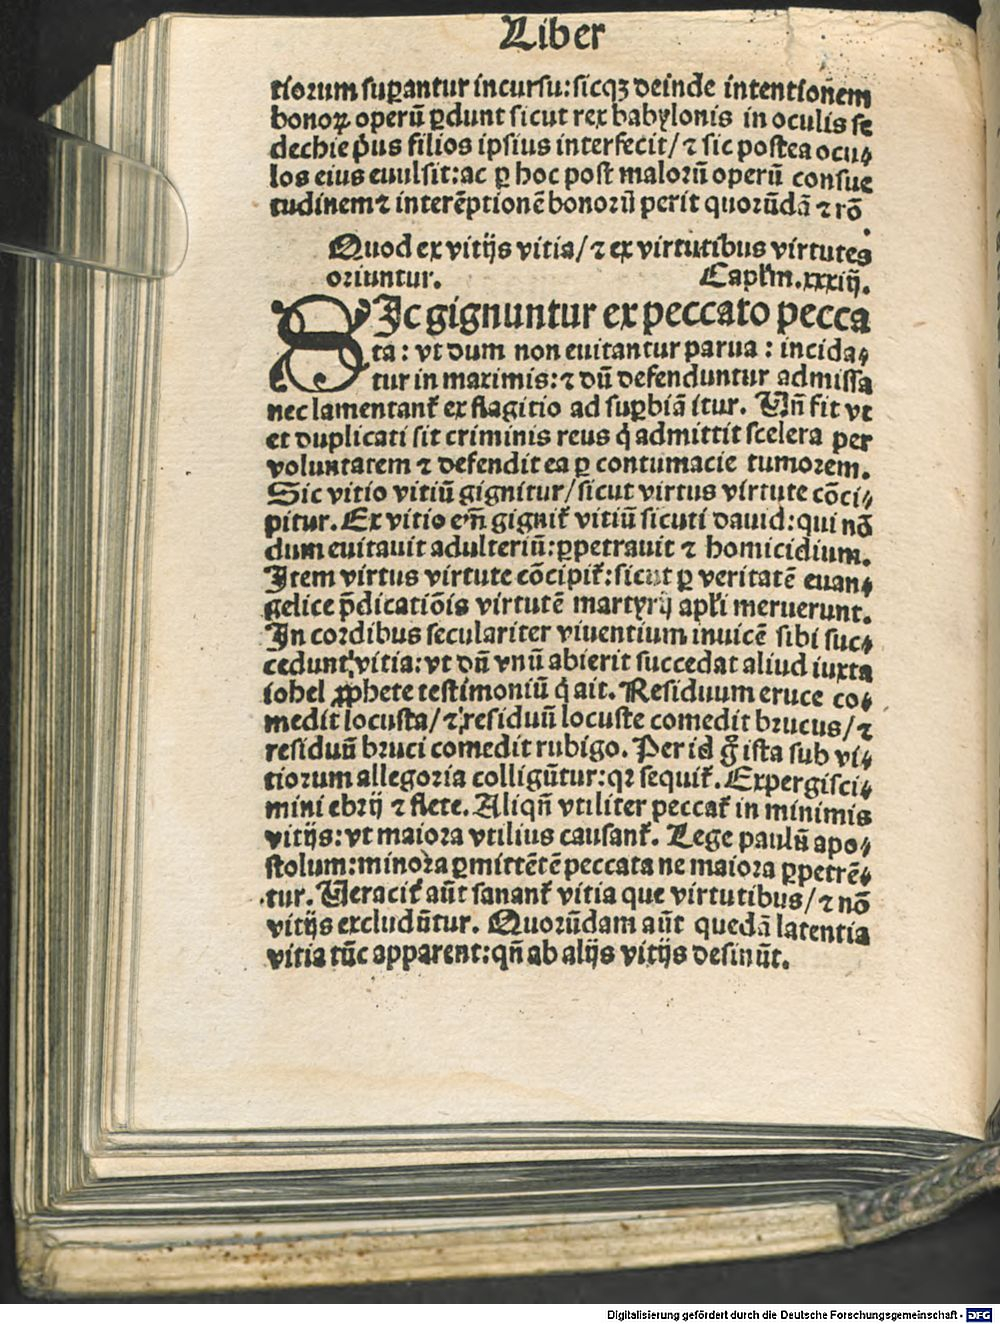 Liber
tiorum suꝑantur incursu: sicqꝫ deinde intentionẽm
bonoꝝ operũ ꝑdunt sicut rex babylonis in oculis se
dechie p̃us filios ipsius interfecit/ ⁊ sic postea ocu⸗
los eius euulsit: ac ꝑ hoc post malorũ operũ consue
tudinem ⁊ interẽptionẽ bonorũ perit quorũdã ⁊ rõ
.
Quod ex vitijs vitia/ ⁊ ex virtutibus virtutes
oriuntur. Caplm̃.xxxiij.
SIc gignuntur ex peccato pecca
ta: vt dum non euitantur parua: incida⸗
tur in maximis: ⁊ dũ defenduntur admissa
nec lamentant᷑ ex flagitio ad suꝑbiã itur. Vñ fit vt
et duplicati sit criminis reus q̇ admittit scelera per
voluntatem ⁊ defendit ea ꝑ contumacie tumorem.
Sic vitio vitiũ gignitur/ sicut virtus virtute cõci⸗
pitur. Ex vitio em̃ gignit᷑ vitiũ sicuti dauid: qui nõ
dum euitauit adulteriũ: ꝑpetrauit ⁊ homicidium.
Item virtus virtute cõcipit᷑: sicut ꝑ veritatẽ euan⸗
gelice p̃dicatiõis virtutẽ martyrij apl̃i meruerunt.
In cordibus seculariter viuentium inuicẽ sibi suc⸗
cedunt vitia: vt dũ vnũ abierit succedat aliud iuxta
iohel ꝓphete testimoniũ q̇ ait. Residuum eruce co⸗
medit locusta/ ⁊ residuũ locuste comedit brucus/ ⁊
residuũ bruci comedit rubigo. Per id g̊ ista sub vi⸗
tiorum allegoria colligũtur: qꝛ sequit᷑. Expergisci⸗
mini ebrij ⁊ flete. Aliqñ vtiliter peccat᷑ in minimis
vitijs: vt maiora vtilius causant᷑. Lege paulũ apo⸗
stolum: minora ꝑmittẽtẽ peccata ne maiora ꝑpetrẽ⸗
tur. Veracit᷑ aũt sanant᷑ vitia que virtutibus/ ⁊ nõ
vitijs excludũtur. Quorũdam aũt quedã latentia
vitia tũc apparent: qñ ab alijs vitijs desinũt.
Digitalisierung gefördert durch die Deutsche Forschungsgemeinschaft - DFG